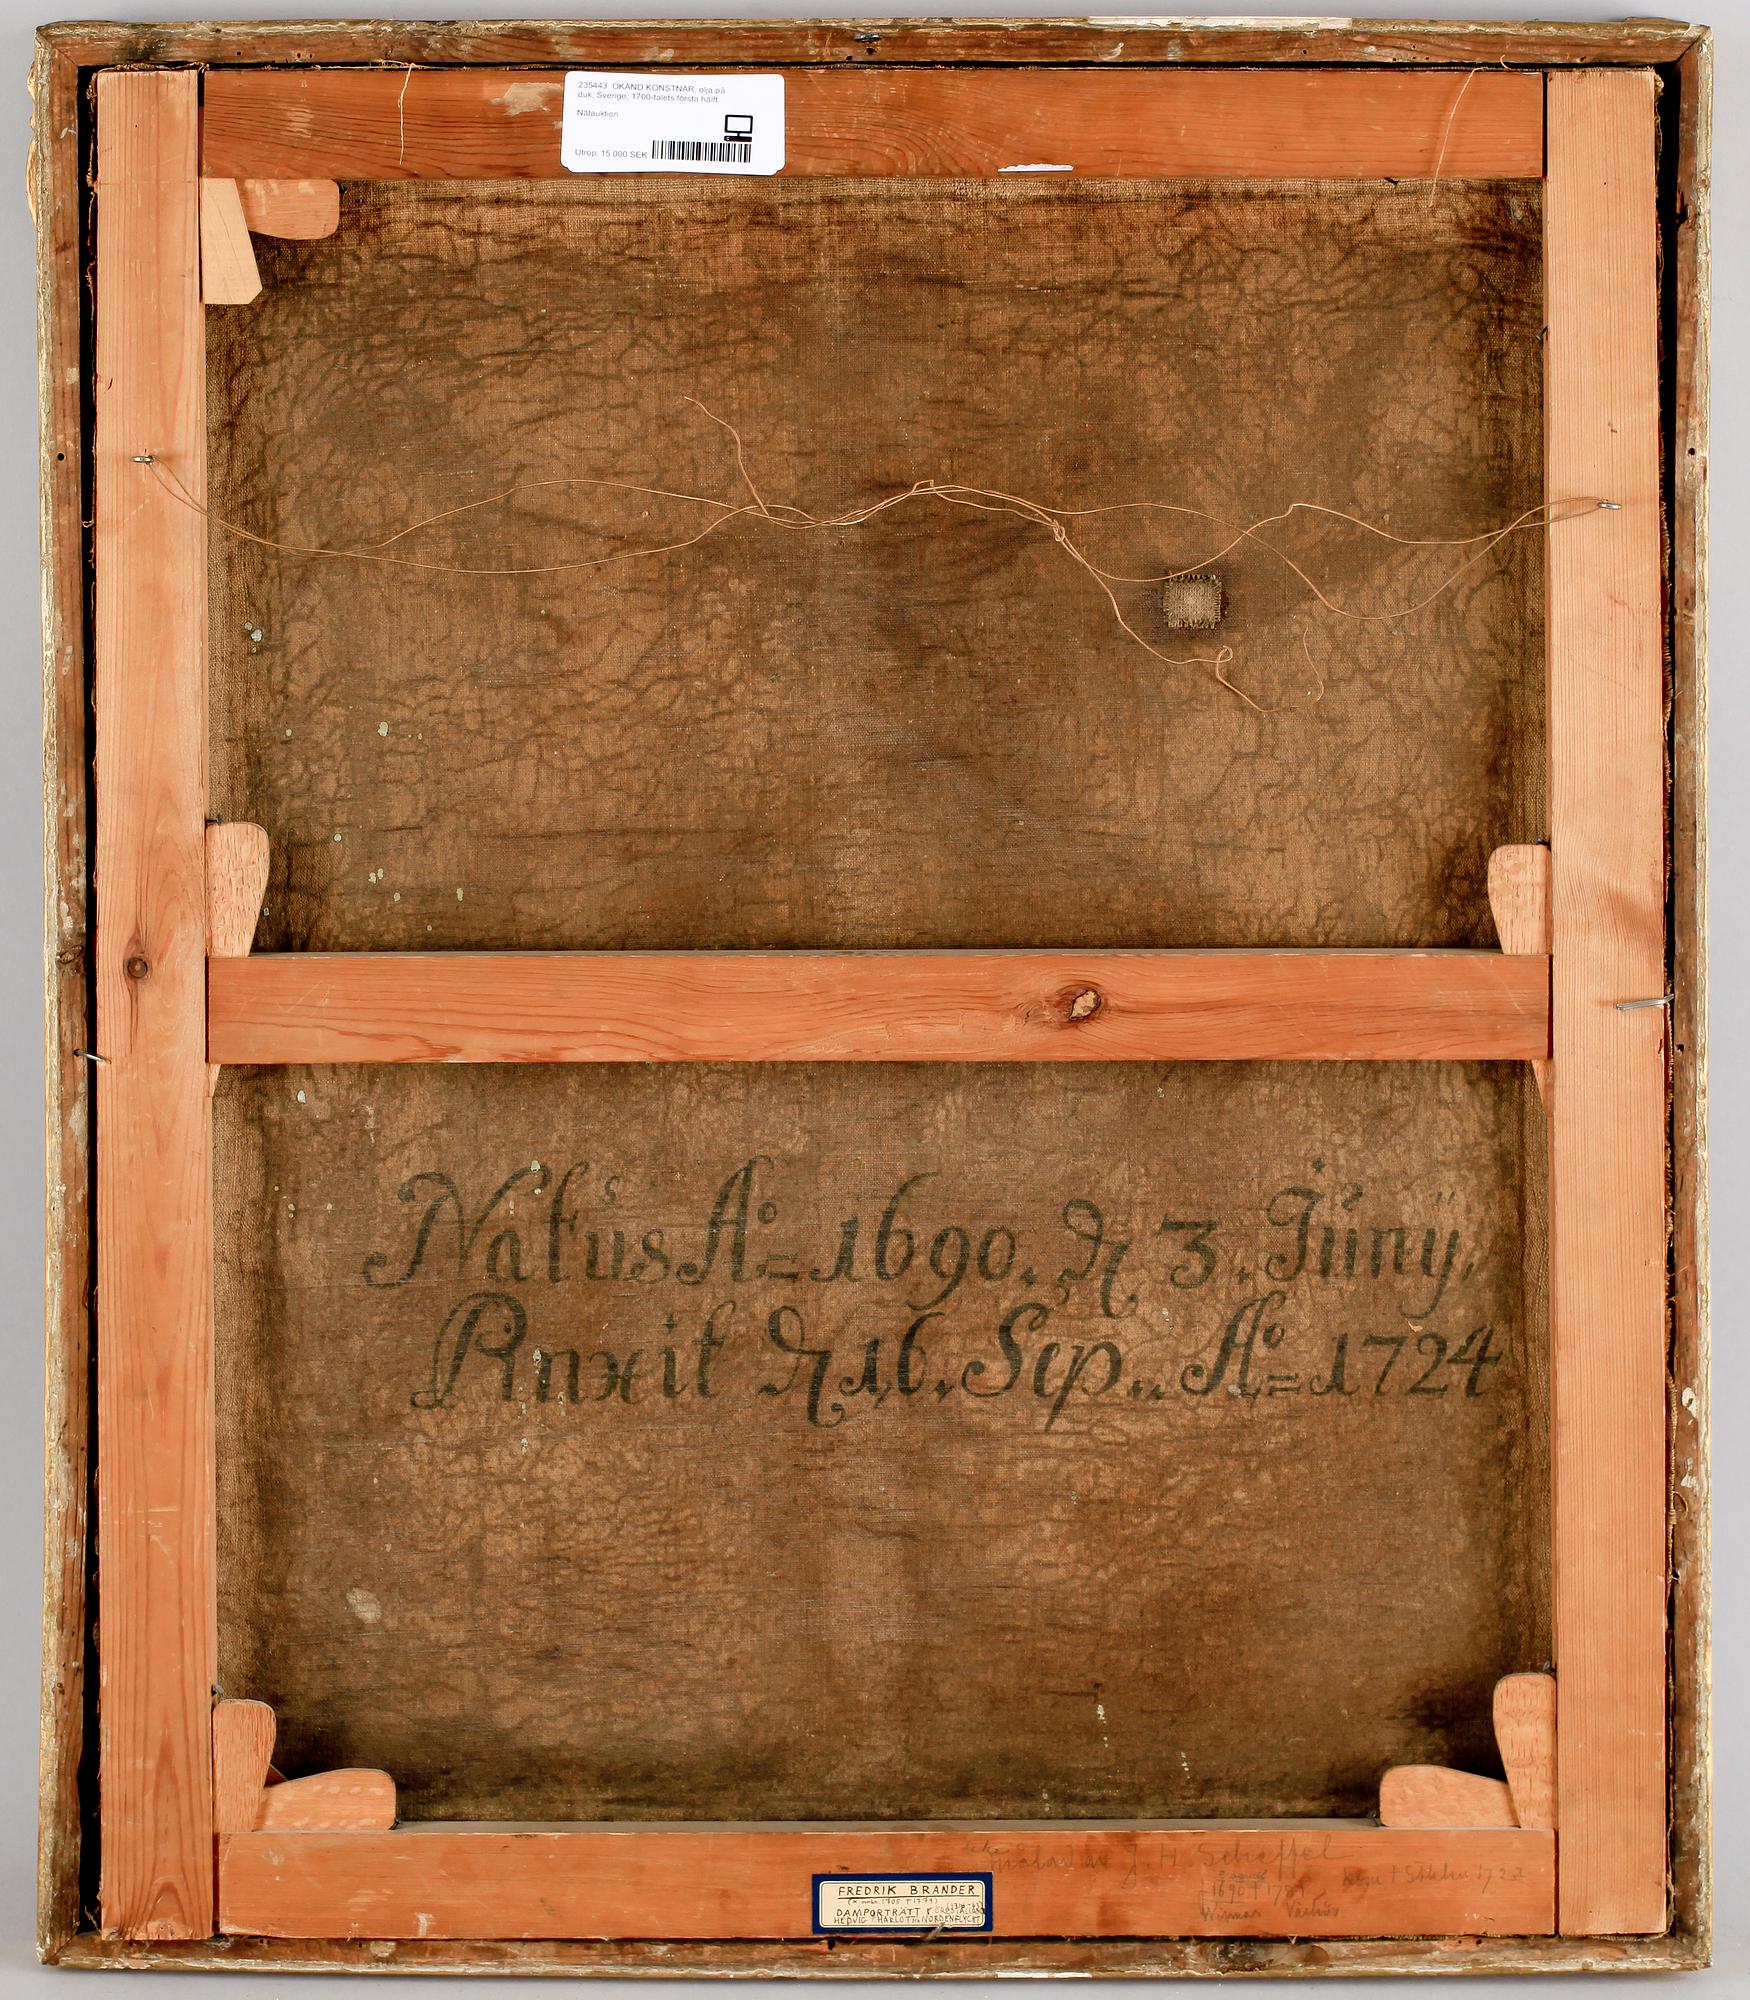 235443. OKÄND KONSTNÄR, olja på
duk, Sverige, 1700-talets första hälft
Nätauktion
Utrop: 15 000 SEK
Natus A° = 1690. d 3. Juny.
Pinxit d 16. Sep.. A° = 1724
målad av J. H. Scheffel
1690 † 1781
Wismar Västerås
FREDRIK BRANDER
(* omkr. 1705 † 1779)
DAMPORTRÄTT FÖRESTÄLLANDE
HEDVIG CHARLOTTA NORDENFLYCHT